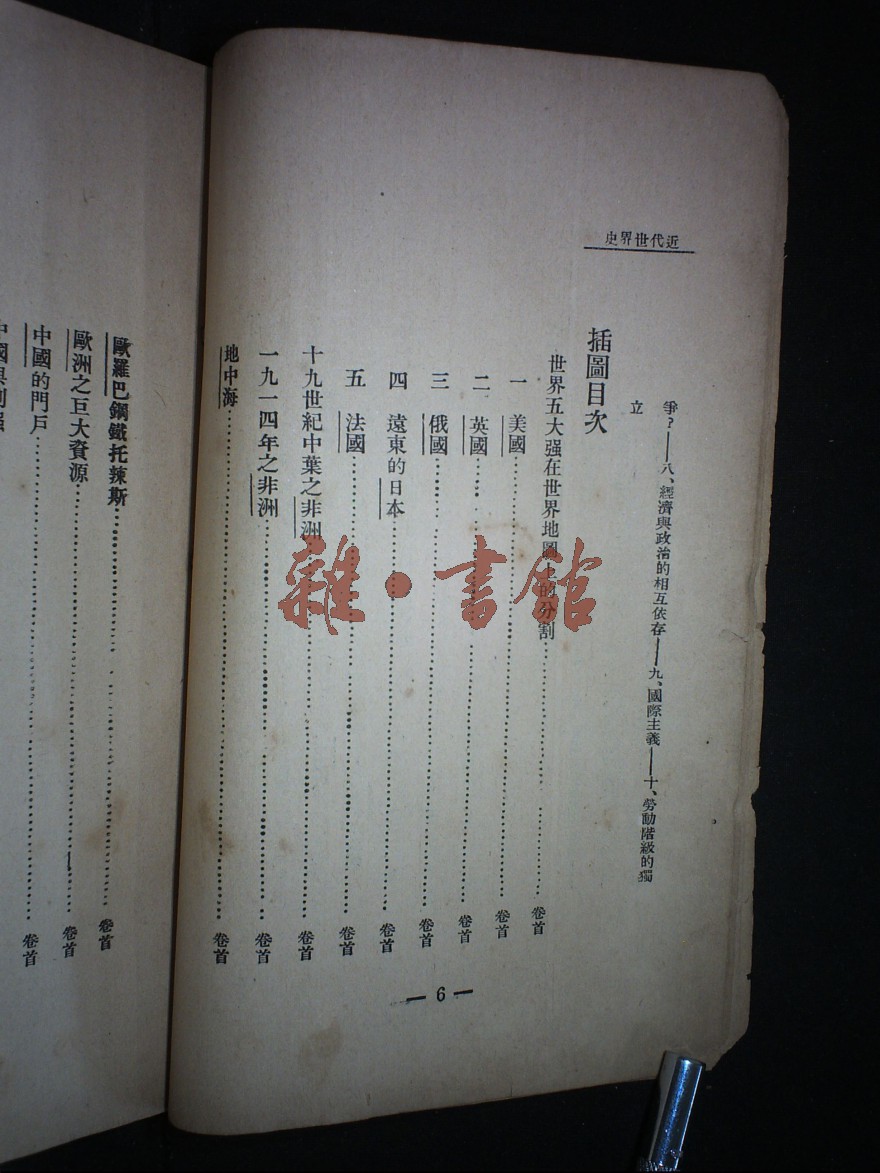 史界世代近
爭?——八、經濟與政治的相互依存——九、國際主義——十、勞動階級的獨
立
插圖目次
世界五大强在世界地圖上的分割……卷首
一 美國……卷首
二 英國……卷首
三 俄國……卷首
四 遠東的日本……卷首
五 法國……卷首
十九世紀中葉之非洲……卷首
一九一四年之非洲……卷首
地中海……卷首
— 6 —
歐羅巴鋼鐵托辣斯……卷首
歐洲之巨大資源……卷首
中國的門戶……卷首
中國與列强
雜·書館